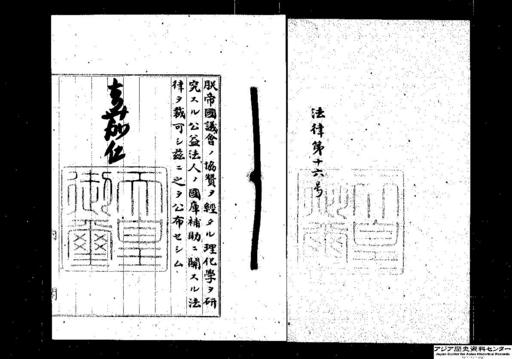 法律第十六号
朕帝國議會ノ協賛ヲ經タル理化學ヲ研
究スル公益法人ノ國庫補助ニ關スル法
律ヲ裁可シ茲ニ之ヲ公布セシム
嘉仁
天皇
御璽
アジア歴史資料センター
Japan Center for Asian Historical Records